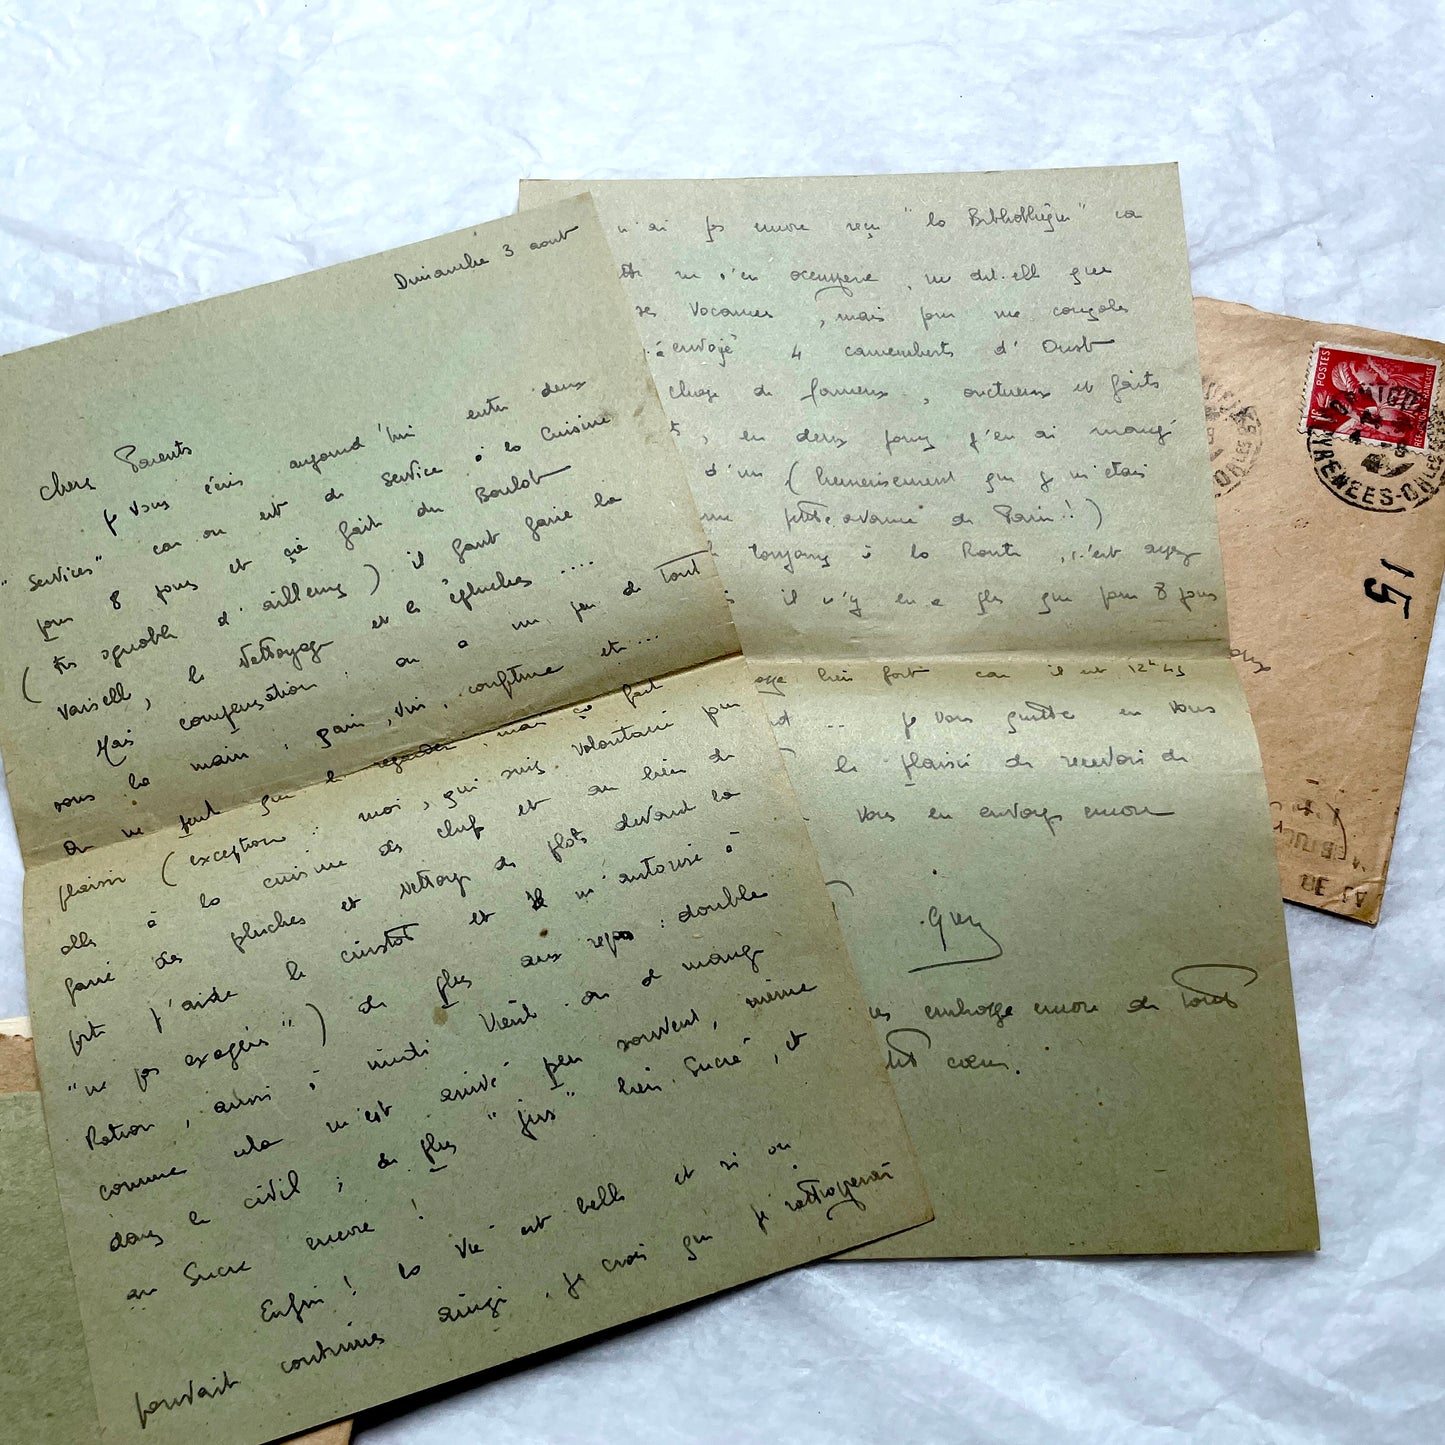 Dimanche 3 aout
Chers Parents
Je vous écris aujourd'hui entre deux
"Services" car on est de service à la Cuisine
pour 8 jours et çà fait du Boulot
(très ignoble d'ailleurs) il faut faire la
Vaiselle, le Nettoyage et les épluches ....
Mais compensation : on a un peu de tout
sous la main : pain, vin, confiture etc ...
On ne peut que le regarder, mais ça fait
plaisir (exception : moi, qui suis volontaire pour
alle à la cuisine des chefs et au lieu de
faire des pluches et Nettoyage de plats devant la
porte j'aide le cuistot et il m'autorise à
"ne pas exagérer") de plus aux repas : double
Ration, aussi à midi vient on de mange
comme cela m'est arrivé peu souvent, même
dans le civil ; de plus "jus" bien Sucré, et
au Sucre encore !
Enfin ! la Vie est belle et si on
pouvait continuer ainsi, je crois que je rattraperai
n'ai pas encore reçu "la Bibliothèque" car
ne s'en occupera, me dit-elle que
ses Vacances, mais pour me consoler
a envoyé 4 camemberts d'Oust
de fameux, onctueux et faits
, en deux jours j'en ai mangé
d'un (heureusement que je m'étais
une petite avance de Pain !!)
toujours à la Route, c'est assez
il n'y en a plus que pour 8 jours
bien fort car il est 12h45
... je vous quitte en vous
le plaisir de recevoir de
vous en envoye encore
Guy
embrasse encore de tout
coeur.
POSTES
REPUBLIQUE FRANCAISE
PYRENEES-ORLES
15